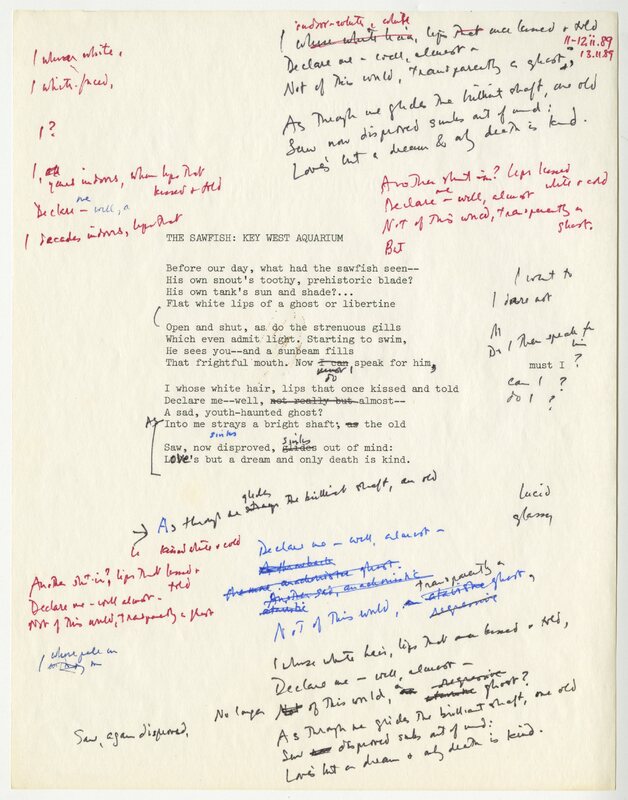 indoor-white & white
I whose white hair, lips that once kissed & told
11-12.ii.89
13.ii.89
Declare me – well, almost –
Not of this world, transparently a ghost;
As through me glides the brilliant shaft, one old
Saw now disproved sinks out of mind:
Love's but a dream & only death is kind.
I whose white,
I white-faced,
I?
I,
indoors, whom lips that
kissed & told
Declare me – well, a
I indoors, lips that
Another shut-in? Lips kissed
Declare me – well, almost white & cold
Not of this world, transparently a
ghost.
But
THE SAWFISH: KEY WEST AQUARIUM
Before our day, what had the sawfish seen--
His own snout's toothy, prehistoric blade?
His own tank's sun and shade?...
Flat white lips of a ghost or libertine
Open and shut, as do the strenuous gills
Which even admit light. Starting to swim,
He sees you--and a sunbeam fills
That frightful mouth. Now I can speak for him,
must I
do
I whose white hair, lips that once kissed and told
Declare me--well, not really but almost--
A sad, youth-haunted ghost?
As
Into me strays a bright shaft; as the old
sinks
sinks
Saw, now disproved, glides out of mind:
Love's but a dream and only death is kind.
I want to
I dare not
Do I then speak for
him
must I ?
can I ?
do I ?
glides
As through me strays the brilliant shaft, an old
lucid
glassy
kissed white & cold
Another shut-in? lips that kissed &
told
Declare me – well almost –
Not of this world, transparently a ghost
I whose pale
Declare me – well, almost –
ghost.
Another sad, anachronistic
transparently a
Not of this world, an atavistic ghost,
regressive
I whose white hair, lips that once kissed & told,
Declare me – well, almost –
No longer Not of this world, a regressive ghost?
As through me glides the brilliant shaft, one old
Saw disproved sinks out of mind:
Love's but a dream & only death is kind.
Saw, again disproved,